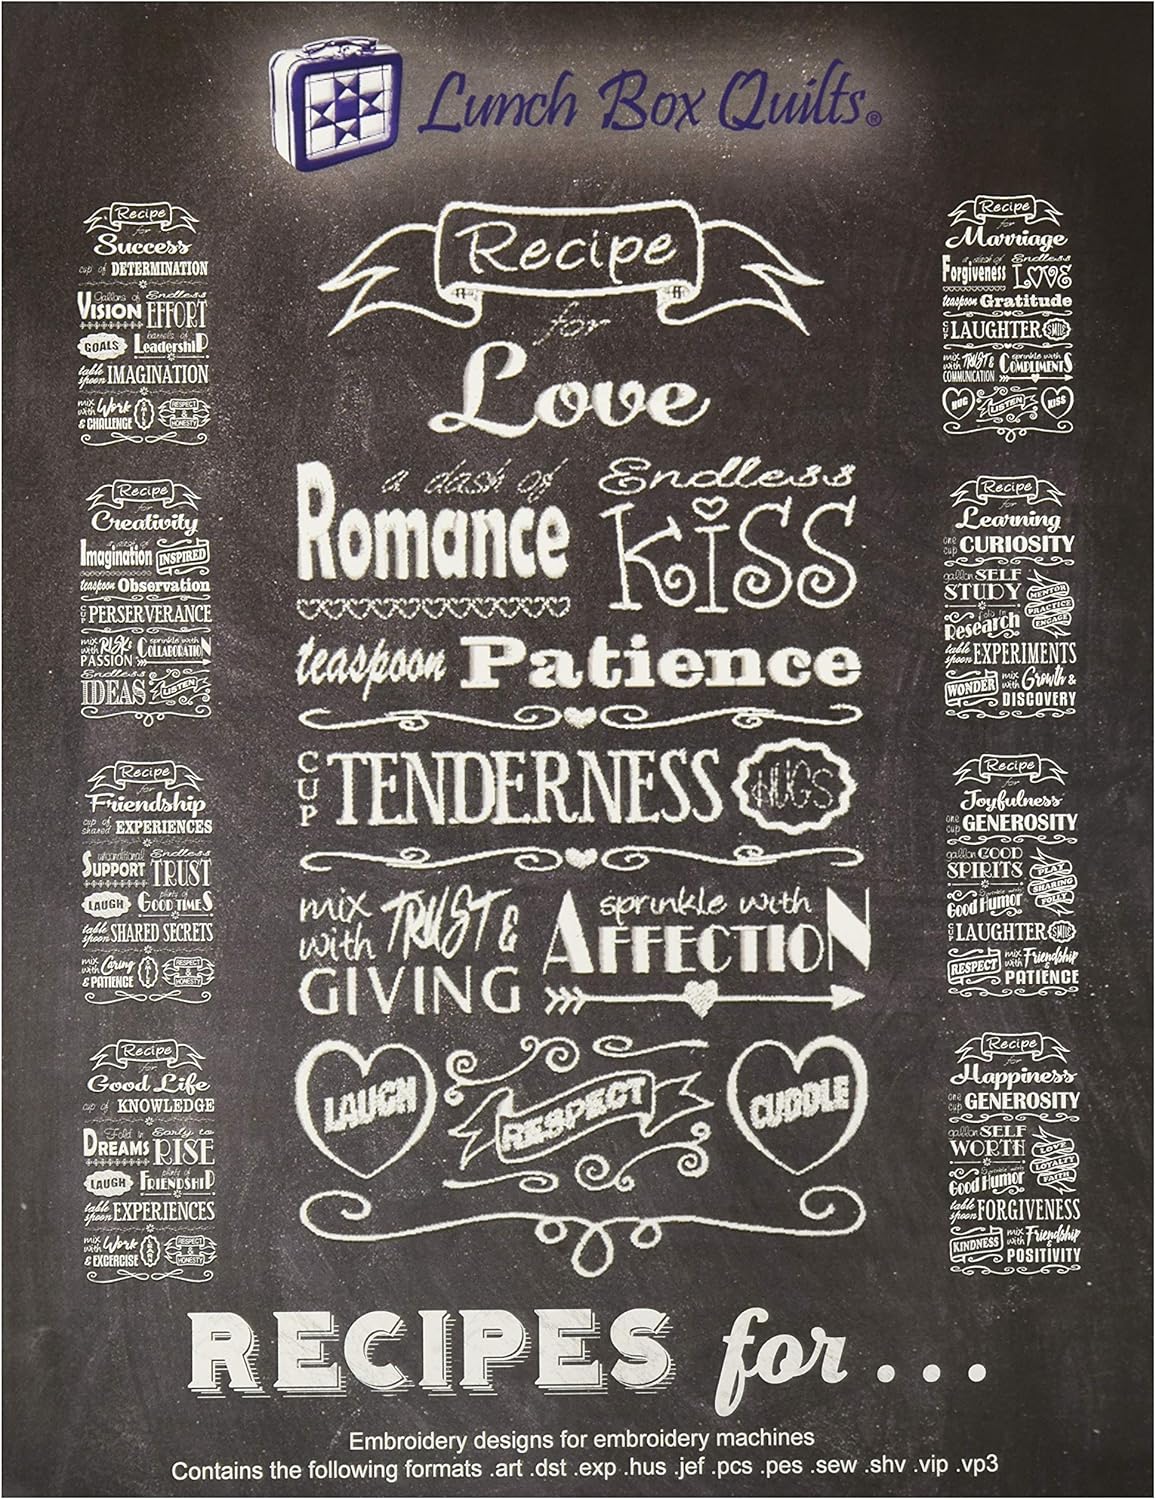 Lunch Box Quilts®
Recipe
for
Love
a dash of
Romance
Endless
KiSS
teaspoon Patience
CUP TENDERNESS HUGS
mix
with TRUST &
GIVING
sprinkle with
AFFECTION
LAUGH
RESPECT
CUDDLE
Recipe
for
Success
cup of DETERMINATION
Gallons of
VISION
Endless
EFFORT
GOALS
barrels of
LeadershiP
table
spoon IMAGINATION
mix
with Work
& CHALLENGE
RESPECT
&
HONESTY
Recipe
for
Creativity
a dash of
Imagination INSPIRED
teaspoon Observation
CUP PERSERVERANCE
mix
with RISK &
PASSION
sprinkle with
COLLABORATION
Endless
IDEAS LISTEN
Recipe
for
Friendship
cup of
shared EXPERIENCES
unconditional
SUPPORT
Endless
TRUST
LAUGH
plenty of
GOOD TIMES
table
spoon SHARED SECRETS
mix
with Caring
& PATIENCE
RESPECT
&
HONESTY
Recipe
for
Good Life
cup of KNOWLEDGE
Fold in
DREAMS
Early to
RISE
LAUGH
plenty of
FRIENDSHIP
table
spoon EXPERIENCES
mix
with Work
& EXCERCISE
RESPECT
&
HONESTY
Recipe
for
Marriage
a dash of
Forgiveness
Endless
LOVE
teaspoon Gratitude
CUP LAUGHTER SMILE
mix
with TRUST &
COMMUNICATION
sprinkle with
COMPLIMENTS
HUG
LISTEN
KISS
Recipe
for
Learning
one
cup CURIOSITY
gallon SELF
STUDY
MENTOR
PRACTICE
ENGAGE
fold in
Research
table
spoon EXPERIMENTS
WONDER
mix
with Growth &
DISCOVERY
Recipe
for
Joyfulness
one
cup GENEROSITY
gallon GOOD
SPIRITS
PLAY
SHARING
FOLLY
Sprinkle with
Good Humor
CUP LAUGHTER SMILE
RESPECT
mix
with Friendship
& PATIENCE
Recipe
for
Happiness
one
cup GENEROSITY
gallon SELF
WORTH
LOVE
LOYALTY
FAITH
Sprinkle with
Good Humor
table
spoon FORGIVENESS
KINDNESS
mix
with Friendship
& POSITIVITY
RECIPES for...
Embroidery designs for embroidery machines
Contains the following formats .art .dst .exp .hus .jef .pcs .pes .sew .shv .vip .vp3